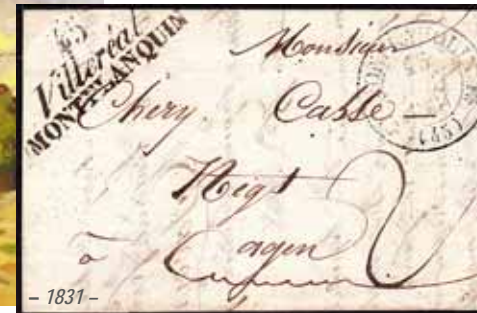 45
Villeréal
MONTFLANQUIN
Monsieur
Chery Cassé
Negt
à agen
2
(45)
– 1831 –